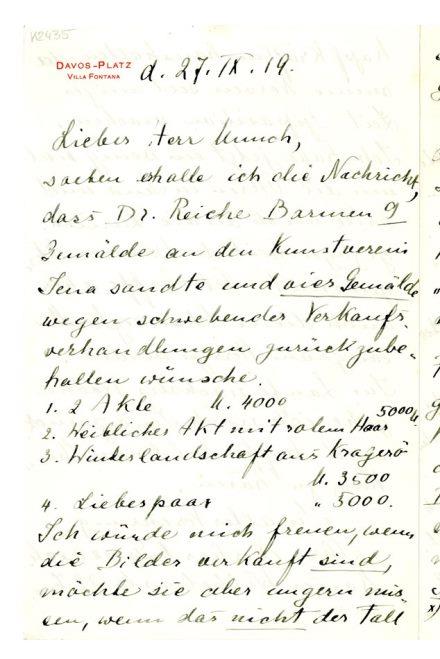 K2435
DAVOS-PLATZ
VILLA FONTANA
d. 27. IX. 19.
Lieber Herr Munch,
soeben erhalte ich die Nachricht,
dass Dr. Reiche Barmen 9
Gemälde an den Kunstverein
Jena sandte und vier Gemälde
wegen schwebender Verkaufs-
verhandlungen zurückzube-
halten wünsche.
1. 2 Akte M. 4000
2. Weiblicher Akt mit rotem Haar 5000 M.
3. Winterlandschaft aus Kragerö
M. 3500
4. Liebespaar " 5000.
Ich würde mich freuen, wenn
die Bilder verkauft sind,
möchte sie aber ungern mis-
sen, wenn das nicht der Fall